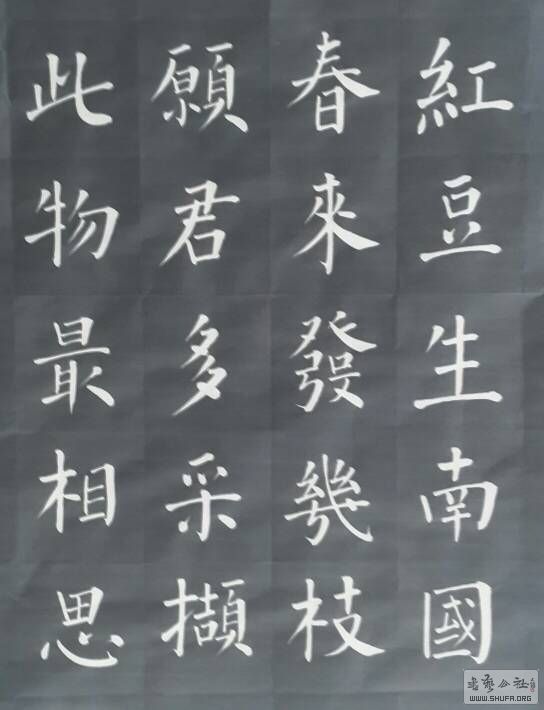 紅豆生南國
春來發幾枝
願君多采擷
此物最相思
WWW.SHUFA.ORG